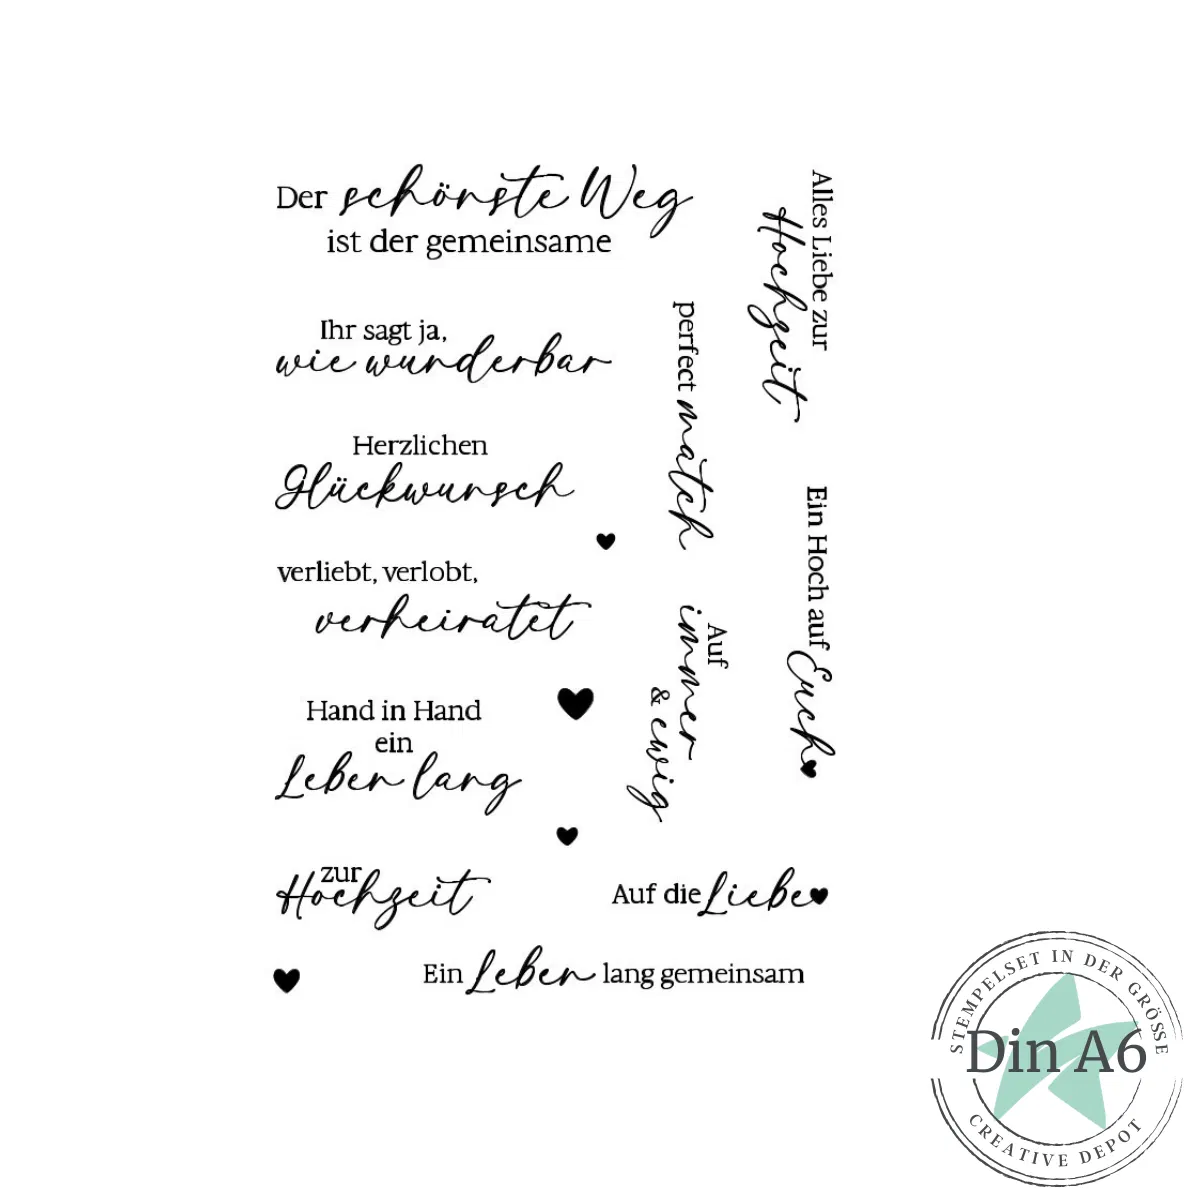 Der schönste Weg
ist der gemeinsame
Ihr sagt ja,
wie wunderbar
Herzlichen
Glückwunsch
verliebt, verlobt,
verheiratet
Hand in Hand
ein
Leben lang
zur
Hochzeit
Ein Leben lang gemeinsam
Auf die Liebe
perfect match
Auf
immer
& ewig
Alles Liebe zur
Hochzeit
Ein Hoch auf Euch
STEMPELSET IN DER GRÖSSE
Din A6
CREATIVE DEPOT